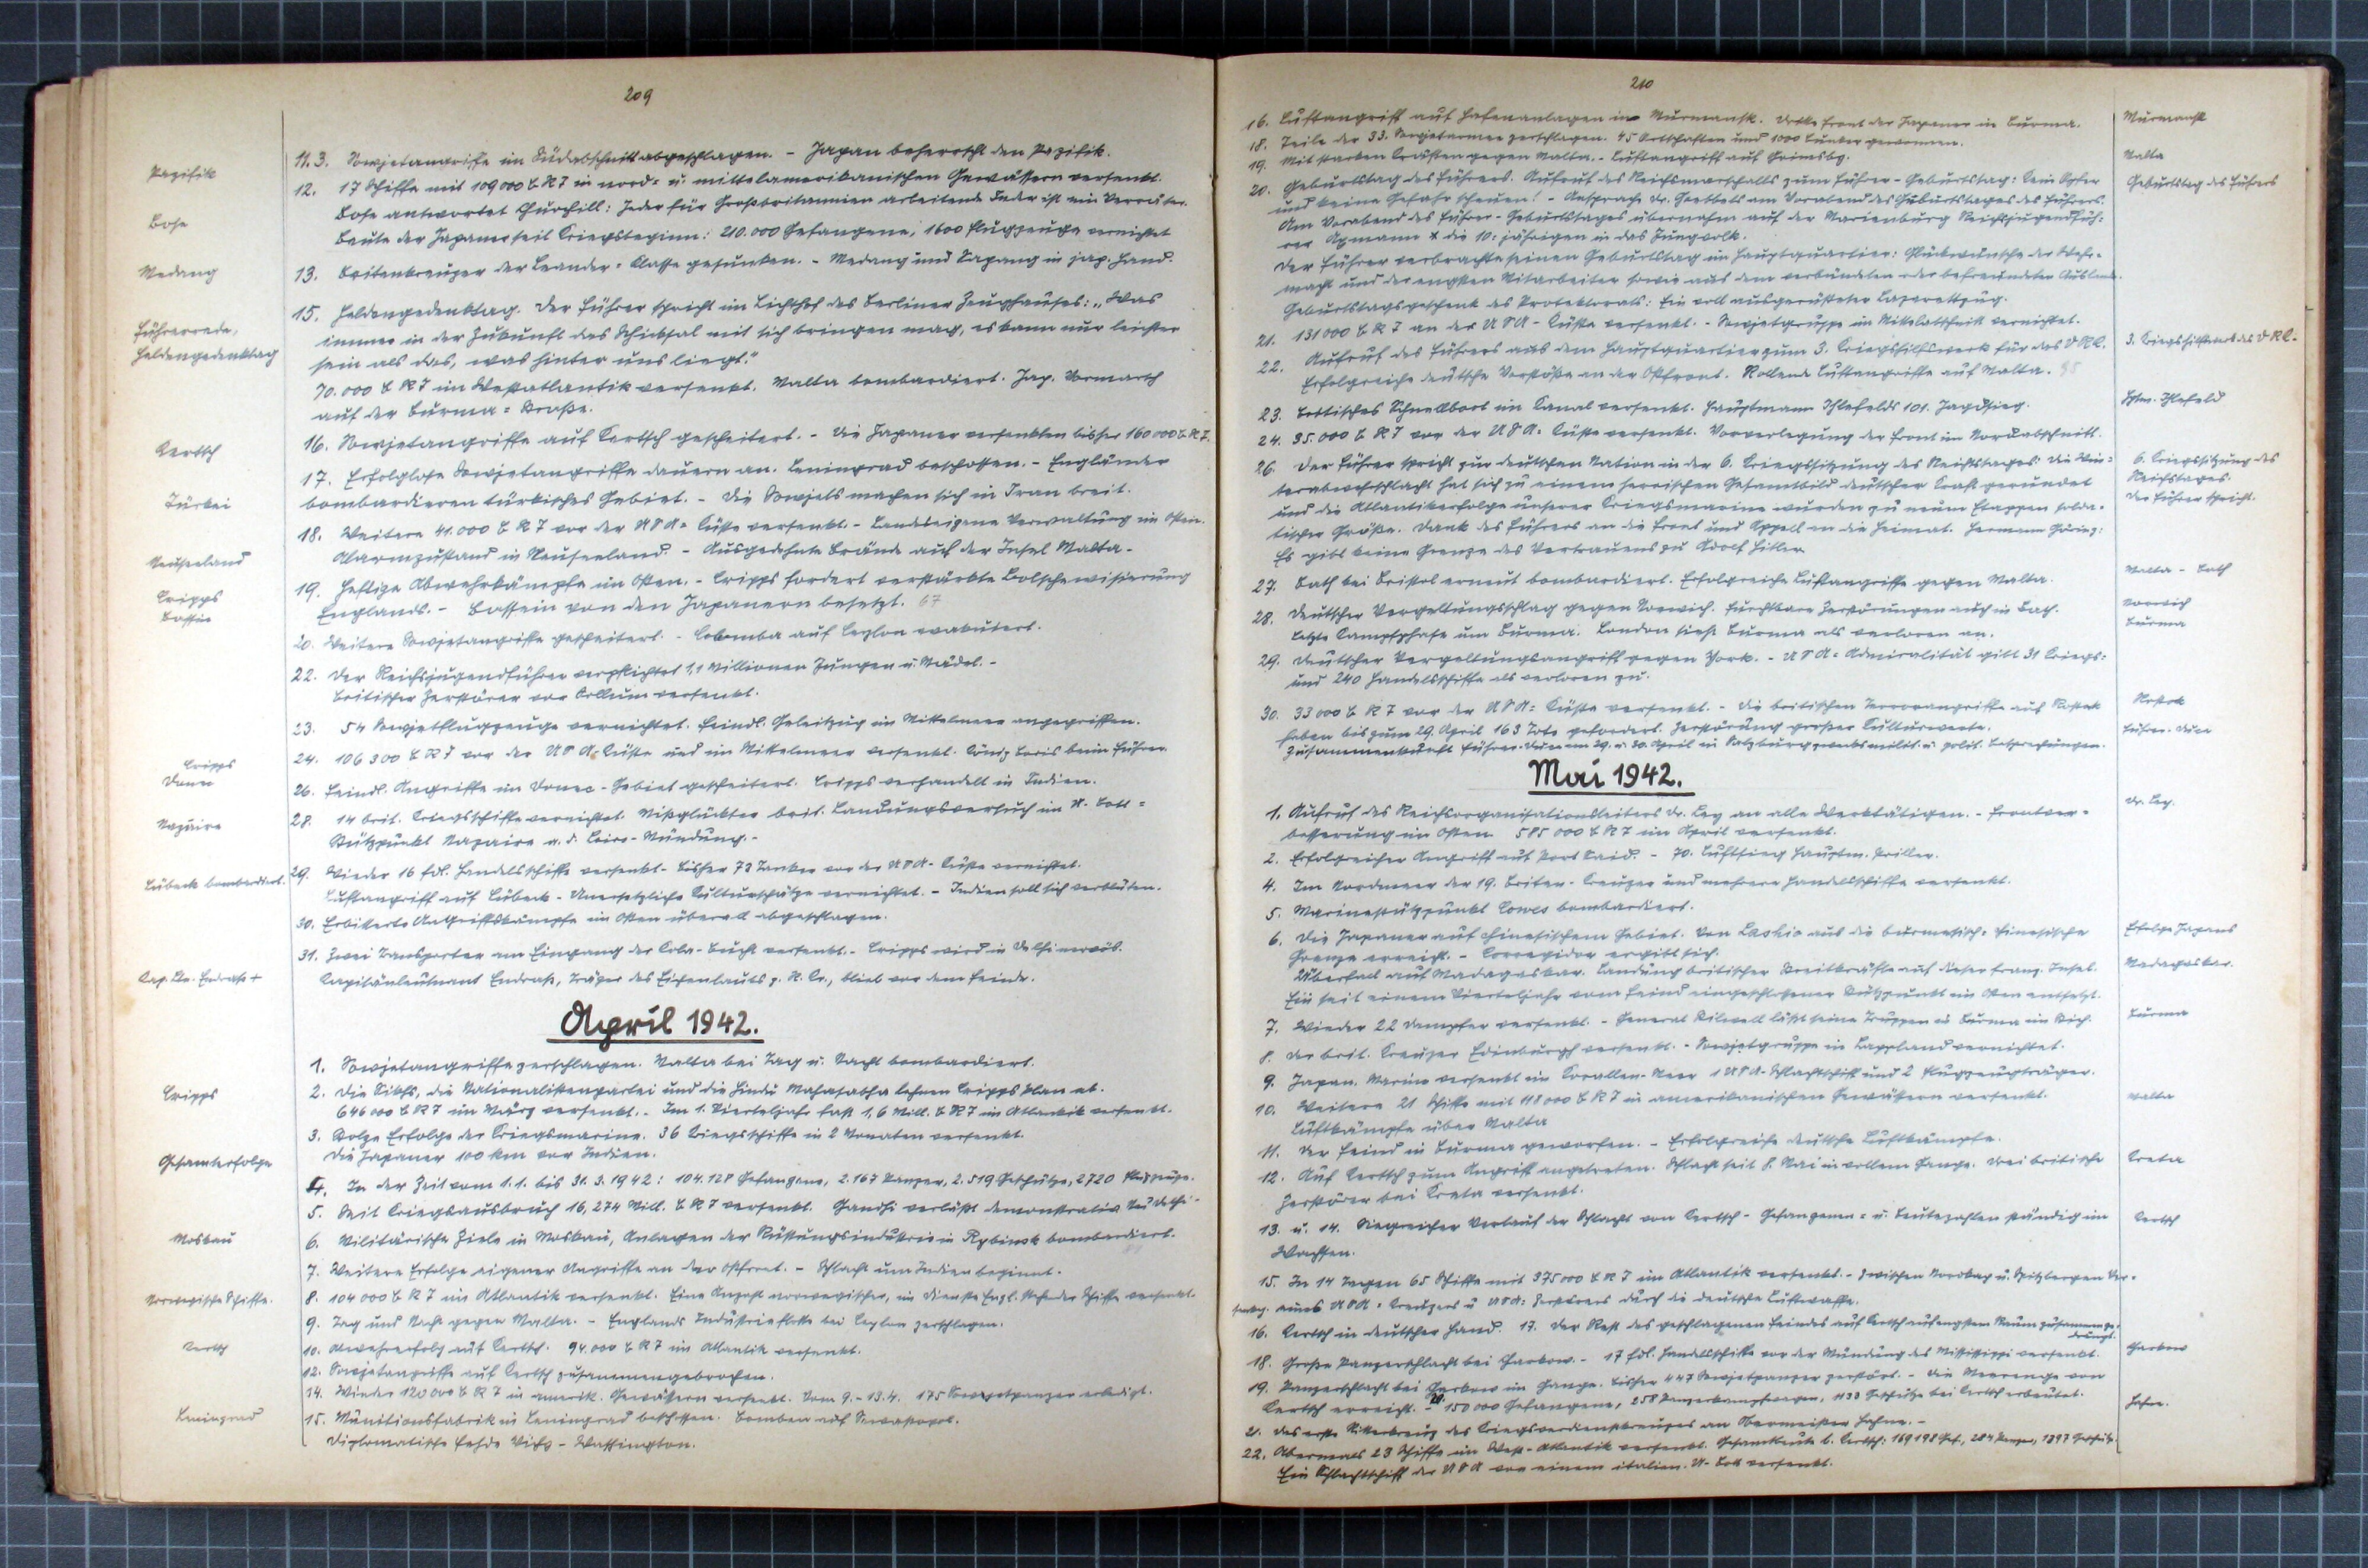 209
Pazifik
11.3. Sowjetangriffe im Südabschnitt abgeschlagen. - Japan beherrscht den Pazifik.
12. 17 Schiffe mit 109000 BRT in nord= u. mittelamerikanischen Gewässern versenkt.
Bose
Bose antwortet Churchill: Jeder für Großbritannien arbeitende Inder ist ein Verräter.
Beute der Japaner seit Kriegsbeginn: 210.000 Gefangene, 1600 Flugzeuge vernichtet
Medang
13. Britenkreuzer der Leander=Klasse gesunken. - Medang und Sapang in jap. Hand.
15. Heldengedenktag. Der Führer spricht im Lichthof des Berliner Zeughauses: „Was
Führerrede,
immer in der Zukunft das Schicksal mit sich bringen mag, es kann nur leichter
Heldengedenktag
sein als das, was hinter uns liegt."
70.000 BRT im Westatlantik versenkt. Malta bombardiert. Jap. Vormarsch
auf der Burma=Straße.
Kertsch
16. Sowjetangriffe auf Kertsch gescheitert. - Die Japaner versenkten bisher 160000 BRT.
17. Erfolglose Sowjetangriffe dauern an. Leningrad beschossen. - Engländer
Türkei
bombardieren türkisches Gebiet. - Die Sowjets machen sich in Iran breit.
18. Weitere 41.000 BRT vor der USA=Küste versenkt. - Landeseigene Verwaltung im Osten.
Neuseeland
Alarmzustand in Neuseeland. - Ausgedehnte Brände auf der Insel Malta.
Cripps
19. Heftige Abwehrkämpfe im Osten. - Cripps fordert verstärkte Bolschewisierung
Bassein
Englands. - Bassein von den Japanern besetzt. 67
20. Weitere Sowjetangriffe gescheitert. - Colomba auf Ceylon evakuiert.
22. Der Reichsjugendführer verpflichtet 1,1 Millionen Jungen u. Mädel. -
Britischer Zerstörer vor Sollum versenkt.
23. 54 Sowjetflugzeuge vernichtet. Feindl. Geleitzug im Mittelmeer angegriffen.
24. 106300 BRT vor der USA-Küste und im Mittelmeer versenkt. König Boris beim Führer.
Cripps
Donec
26. Feindl. Angriffe im Donec-Gebiet gescheitert. Cripps verhandelt in Indien.
Nazaire
28. 14 brit. Kriegsschiffe vernichtet. Mißglückter brit. Landungsversuch im U.Boot=
Stützpunkt Nazaire a.d. Loire-Mündung. -
29. Wieder 16 fdl. Handelsschiffe versenkt. Bisher 73 Tanker vor der USA-Küste vernichtet.
Lübeck bombardiert.
Luftangriff auf Lübeck. Unersetzliche Kulturschätze vernichtet. - Indien soll sich verbluten.
30. Erbitterte Angriffskämpfe im Osten überall abgeschlagen.
31. Zwei Transporter am Eingang der Kola-Bucht versenkt. - Cripps wird in Delhi nervös.
Kap.Ltn. Endraß +
Kapitänleutnant Endraß, Träger des Eichenlaubs z. R.Kr., blieb vor dem Feinde.
April 1942.
1. Sowjetangriffe zerschlagen. Malta bei Tag u. Nacht bombardiert.
Cripps
2. Die Sikhs, die Nationalistenpartei und die Hindu Mahasabha lehnen Cripps Plan ab.
646000 BRT im März versenkt. - Im 1. Vierteljahr fast 1,6 Mill. BRT im Atlantik versenkt.
3. Stolze Erfolge der Kriegsmarine. 36 Kriegsschiffe in 2 Monaten versenkt.
Die Japaner 100 km vor Indien.
Gesamterfolge
4. In der Zeit vom 1.1. bis 31.3.1942: 104.128 Gefangene, 2.167 Panzer, 2.519 Geschütze, 2720 Flugzeuge.
5. Seit Kriegsausbruch 16,274 Mill. BRT versenkt. Gandhi verläßt demonstrativ Neu Delhi.
Moskau
6. Militärische Ziele in Moskau, Anlagen der Rüstungsindustrie in Rybinsk bombardiert.
7. Weitere Erfolge eigener Angriffe an der Ostfront. - Schlacht um Indien beginnt.
Norwegische Schiffe.
8. 104000 BRT im Atlantik versenkt. Eine Anzahl norwegischer, im Dienste Engl. stehender Schiffe versenkt.
9. Tag und Nacht gegen Malta. - Englands Industrieflotte bei Ceylon zerschlagen.
Kertsch
10. Abwehrerfolg auf Kertsch. 94.000 BRT im Atlantik versenkt.
12. Sowjetangriffe auf Kertsch zusammengebrochen.
14. Wieder 120000 BRT in amerik. Gewässern versenkt. Vom 9.-13.4. 175 Sowjetpanzer erledigt.
Leningrad
15. Munitionsfabrik in Leningrad beschossen. Bomben auf Sewastopol.
Diplomatische Fehde Vichy-Washington.
210
16. Luftangriff auf Hafenanlagen in Murmansk. Dritte Front der Japaner in Burma.
Murmansk
18. Teile der 33. Sowjetarmee zerschlagen. 45 Ortschaften und 1000 Bunker genommen.
19. Mit starken Kräften gegen Malta. - Luftangriff auf Grimsby.
Malta
20. Geburtstag des Führers. Aufruf des Reichsmarschalls zum Führer-Geburtstag: Kein Opfer
Geburtstag des Führers
und keine Gefahr scheuen! - Ansprache Dr. Goebbels am Vorabend des Geburtstages des Führers.
Am Vorabend des Führer-Geburtstages übernahm auf der Marienburg Reichsjugendfüh-
rer Axmann die 10=jährigen in das Jungvolk.
Der Führer verbrachte seinen Geburtstag im Hauptquartier: Glückwünsche der Wehr-
macht und der engsten Mitarbeiter sowie aus dem verbündeten oder befreundeten Ausland.
Geburtstagsgeschenk des Protektorats: Ein voll ausgerüsteter Lazarettzug.
21. 131000 BRT an der USA-Küste versenkt. - Sowjetgruppe im Mittelabschnitt vernichtet.
22. Aufruf des Führers aus dem Hauptquartier zum 3. Kriegshilfswerk für das DRK.
3. Kriegshilfswerk des DRK.
Erfolgreiche deutsche Vorstöße an der Ostfront. Rollende Luftangriffe auf Malta.
23. Britisches Schnellboot im Kanal versenkt. Hauptmann Ihlefelds 101. Jagdsieg.
Hptm. Ihlefeld
24. 35.000 BRT vor der USA=Küste versenkt. Vorverlegung der Front im Nordabschnitt.
26. Der Führer spricht zur deutschen Nation in der 6. Kriegssitzung des Reichstages: Die Win=
6. Kriegssitzung des
terabwehrschlacht hat sich zu einem heroischen Gesamtbild deutscher Kraft gerundet
Reichstages.
und die Atlantikerfolge unserer Kriegsmarine wurden zu neuen Etappen solda-
Der Führer spricht.
tischer Größe. Dank des Führers an die Front und Appell an die Heimat. Hermann Göring:
Es gibt keine Grenze des Vertrauens zu Adolf Hitler
27. Bath bei Bristol erneut bombardiert. Erfolgreiche Luftangriffe gegen Malta.
Malta - Bath
28. Deutscher Vergeltungsschlag gegen Norwich. Furchtbare Zerstörungen auch in Bath.
Norwich
Letzte Kampfphase um Burma. London sieht Burma als verloren an.
Burma
29. Deutscher Vergeltungsangriff gegen York. - USA=Admiralität gibt 31 Kriegs=
und 240 Handelsschiffe als verloren zu.
30. 33000 BRT vor der USA=Küste versenkt. - Die britischen Terrorangriffe auf Rostock
Rostock
haben bis zum 29. April 163 Tote gefordert. Zerstörung großer Kulturwerte.
Zusammenkunft Führer-Duce am 29. u. 30. April in Salzburg zwecks milit. u. polit. Besprechungen.
Führer-Duce
Mai 1942.
1. Aufruf des Reichsorganisationsleiters Dr. Ley an alle Werktätigen. - Frontver-
Dr. Ley.
besserung im Osten 585000 BRT im April versenkt.
2. Erfolgreicher Angriff auf Port Said. - 70. Luftsieg Hauptm. Priller.
4. Im Nordmeer der 19. Briten-Kreuzer und mehrere Handelsschiffe versenkt.
5. Marinestützpunkt Cowes bombardiert.
6. Die Japaner auf chinesischem Gebiet. Von Lashio aus die burmesisch=chinesische
Erfolge Japans
Grenze erreicht. - Corregidor ergibt sich.
Überfall auf Madagaskar. Landung britischer Streitkräfte auf dieser franz. Insel.
Madagaskar.
Ein seit einem Vierteljahr vom Feind eingeschlossener Stützpunkt im Osten entsetzt.
7. Wieder 22 Dampfer versenkt. - General Stilwell läßt seine Truppen in Burma im Stich.
Burma
8. Der brit. Kreuzer Edinburgh versenkt. - Sowjetgruppe in Lappland vernichtet.
9. Japan. Marine versenkt im Korallen-Meer 1 USA-Schlachtschiff und 2 Flugzeugträger.
10. Weitere 21 Schiffe mit 118000 BRT in amerikanischen Gewässern versenkt.
Malta
Luftkämpfe über Malta
11. Der Feind in Burma geworfen. - Erfolgreiche deutsche Luftkämpfe.
12. Auf Kertsch zum Angriff angetreten. Schlacht seit 8. Mai in vollem Gange. Drei britische
Kreta
Zerstörer bei Kreta versenkt.
13. u. 14. Siegreicher Verlauf der Schlacht von Kertsch - Gefangenen= u. Beutezahlen ständig im
Kertsch
Wachsen.
15. In 14 Tagen 65 Schiffe mit 375000 BRT im Atlantik versenkt. - Zwischen Nordkap u. Spitzbergen Ver-
senkg. eines USA=Kreuzers u USA=Zerstörers durch die deutsche Luftwaffe.
16. Kertsch in deutscher Hand. 17. Der Rest des geschlagenen Feindes auf Kertsch auf engstem Raum zusammenge-
drängt.
18. Große Panzerschlacht bei Charkow. - 17 fdl. Handelsschiffe vor der Mündung des Mississippi versenkt.
Charkow
19. Panzerschlacht bei Charkow im Gange. Bisher 447 Sowjetpanzer zerstört. - Die Meerenge von
Kertsch erreicht. - 20. 150000 Gefangene, 258 Panzerkampfwagen, 1133 Geschütze bei Kertsch erbeutet.
Hahne.
21. Das erste Ritterkreuz des Kriegsverdienstkreuzes an Obermeister Hahne. -
22. Abermals 23 Schiffe im West-Atlantik versenkt. Gesamtbeute b. Kertsch: 169198 Gef., 284 Panzer, 1397 Geschütze.
Ein Schlachtschiff der USA von einem italien. U-Boot versenkt.